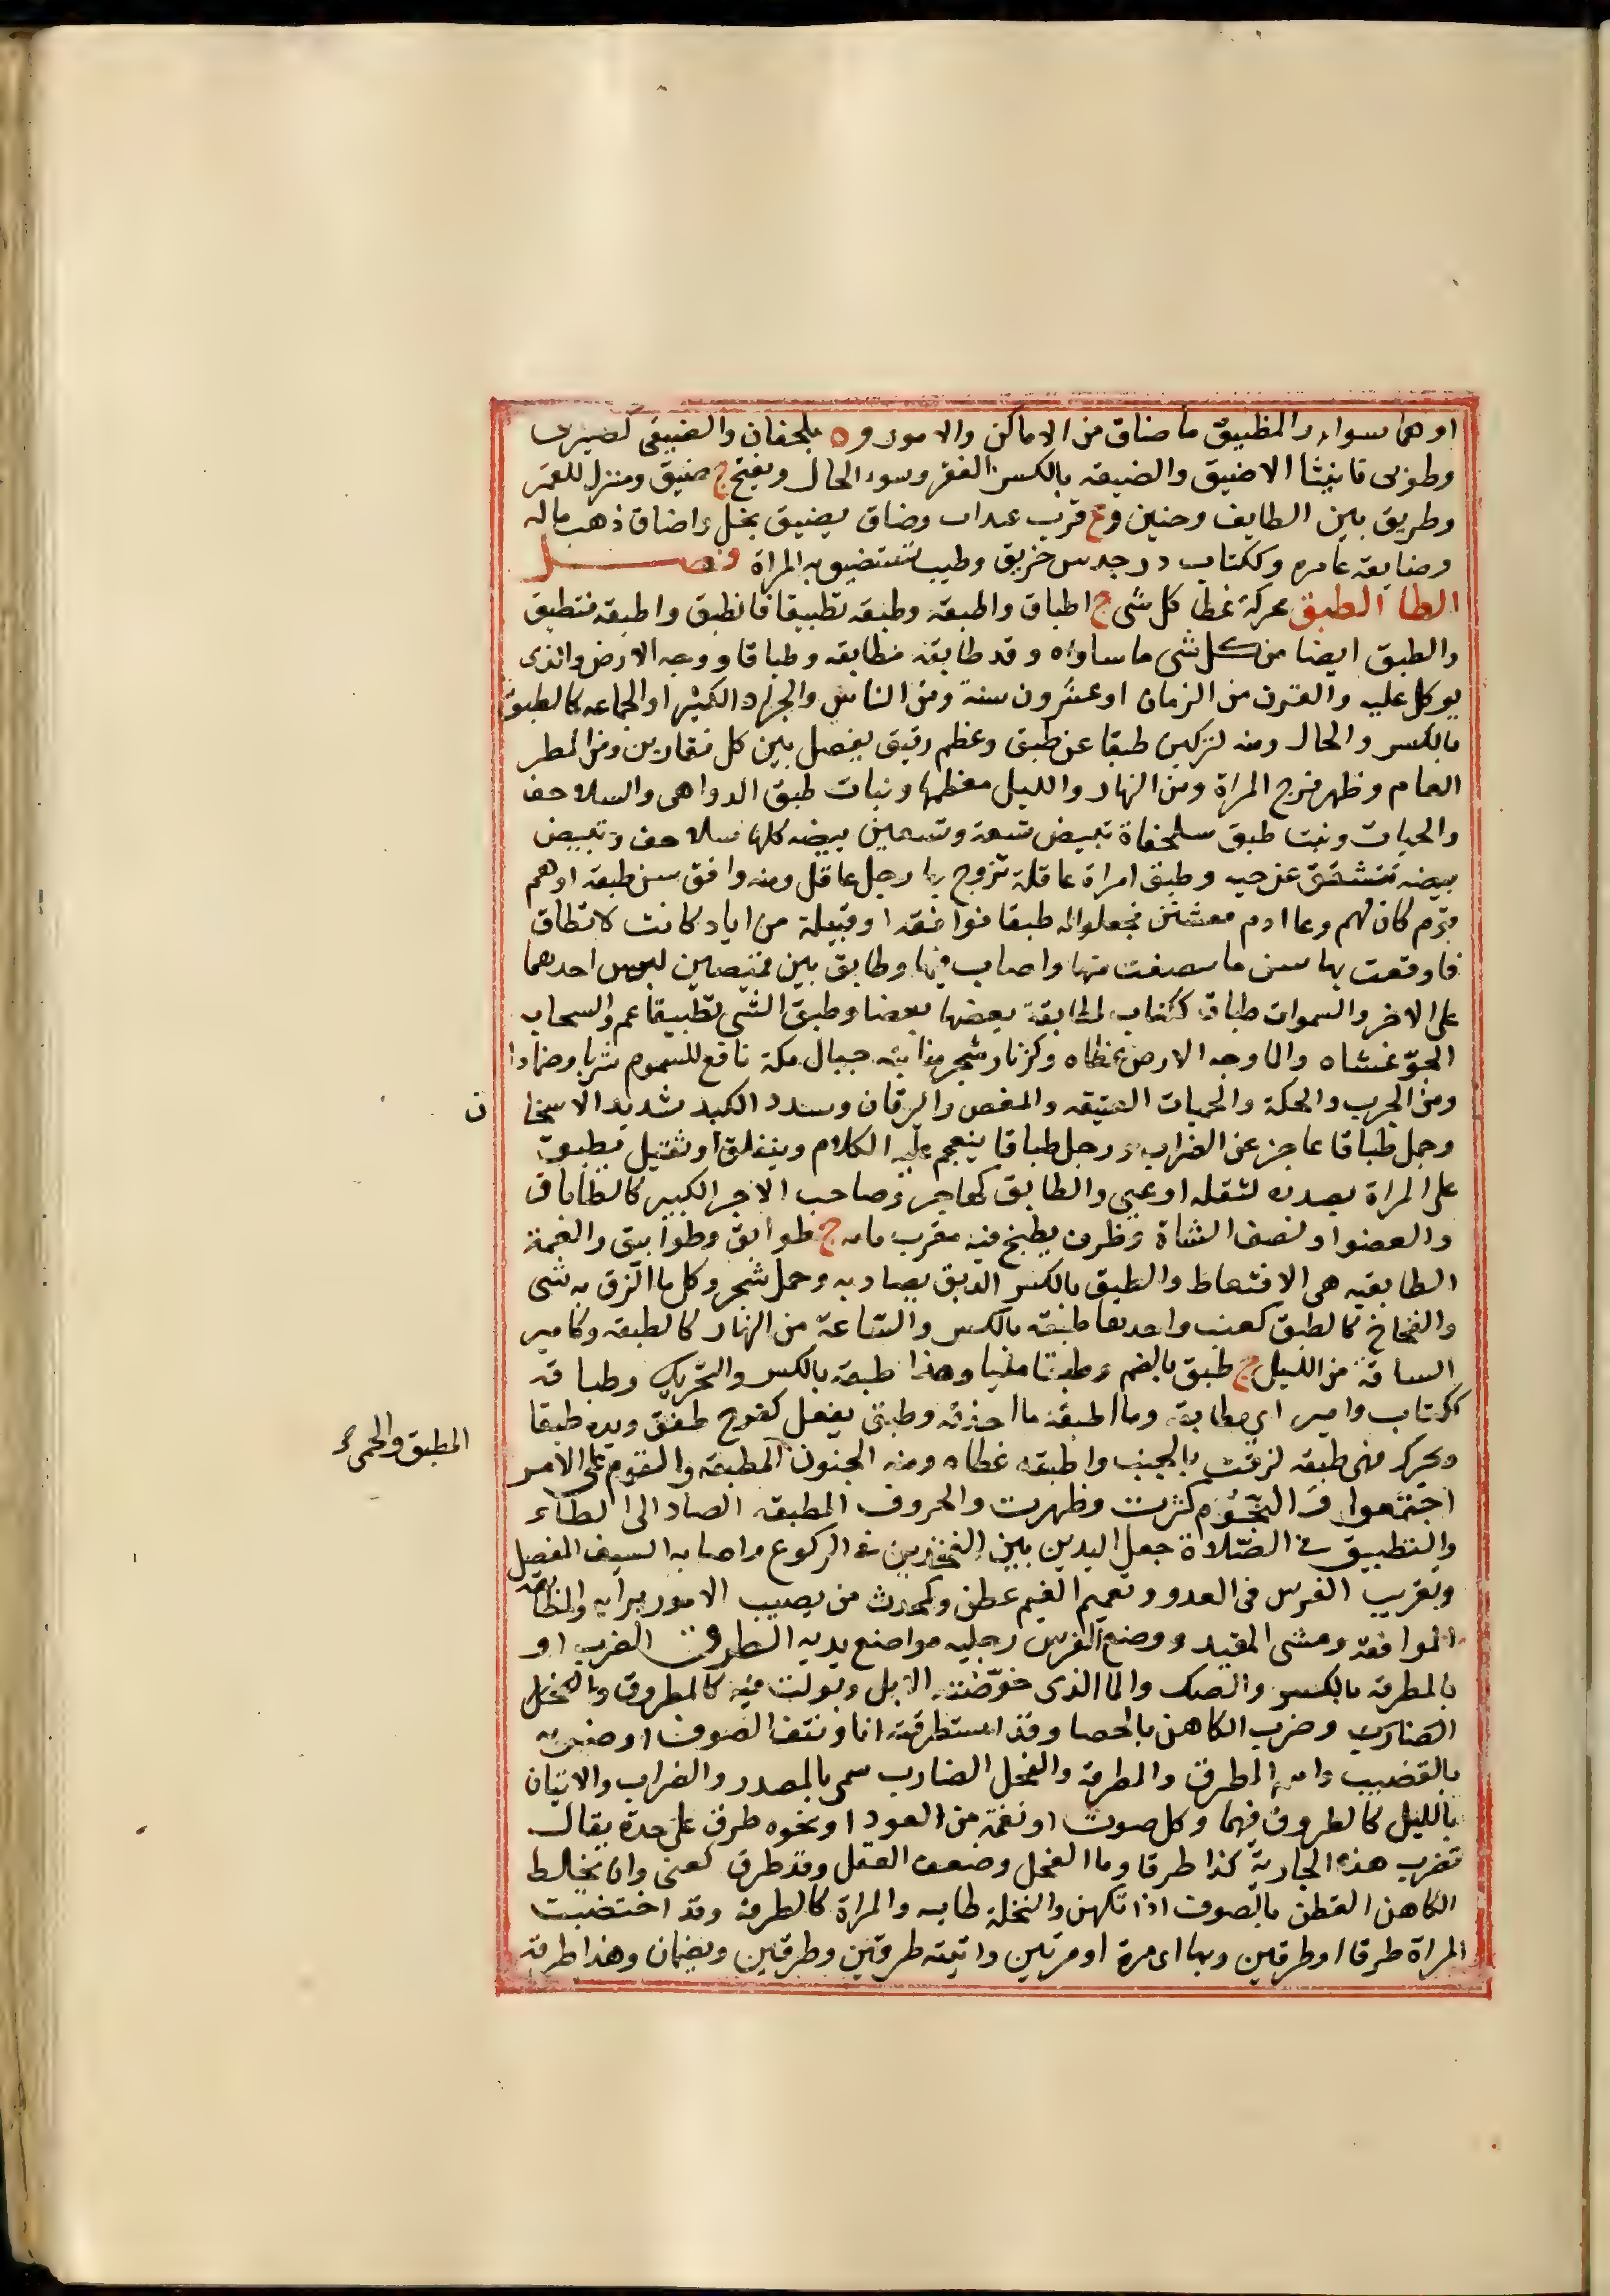 او هما سواء والمظييق ما ضاق من الاماكن والامور و ه بلحفان والضيقى كضيزى
وطوبى تانيثا الاضيق والضيقه بالكسر الفقر وسوء الحال ويفتح ج ضيق ومنزل للقمر
وطريق بين الطايف وحنين وع قرب عيذاب وضاق يضيق بخل واضاق ذهب ماله
وضايقه عاسره وككتاب درجه من خريق وطيب تستضيق به المراة فصل
الطا الطبق محركة غطا كل شى ج اطباق واطبقه وطبقه تطبيقا فانطبق واطبقه فتطبق
والطبق ايضا من كل شى ما ساواه وقد طابقه مطابقه وطباقا ووجه الارض والذى
يوكل عليه والقرن من الزمان او عشرون سنة ومن الناس والجراد الكثير او الجماعه كالطبق
بالكسر والحال ومنه لتركبن طبقا عن طبق وعظم رقيق يفصل بين كل فقارين ومن المطر
العام وظهر فرج المراة ومن النهار والليل معظمها وبنات طبق الدواهى والسلاحف
والحيات وبنت طبق سلحفاة تبيض تسعة وتسعين بيضه كلها سلاحف وتبيض
بيضه تنشقق عن حيه وطبق امراة عاقلة تزوج بها رجل عاقل ومنه وافق شن طبقه او هم
قوم كان لهم وعا ادم فتشنن فجعلوا له طبقا فوافقه او قبيلة من اياد كانت لا تطاق
فاوقعت بها شن فانتصفت منها واصابت فيها وطابق بين قميصين لبس احدهما
على الاخر والسموات طباق ككتاب لمطابقة بعضها بعضا وطبق الشى تطبيقا عم والسحاب
الجوّ غشاه والما وجه الارض غطاه وكزنار شجر منابته جبال مكة نافع للسموم شربا وضمادا
ومن الجرب والحكة والحميات العتيقه والمغص واليرقان وسدد الكبد شديد الاسخا ن
وجمل طباقا عاجز عن الضراب ورجل طباقا ينعجم عليه الكلام وينغلق او ثقيل يطبق
على المراة بصدره لثقله او عيى والطابق كهاجر وصاحب الاجر الكبير كالطاباق
والعضو او نصف الشاة وظرف يطبخ فيه معرب تابه ج طوابق وطوابيق والعمة
الطابقيه هى الاقتعاط والطبق بالكسر الدبق يصاد به وحمل شجر وكل ما الزق به شى
والفخاخ كالطبق كعنب واحدتها طبقه بالكسر والساعة من النهار كالطبقه وكامير
الساعة من الليل ج طبق بالضم وطبقا مليا وهذا طبقه بالكسر والتحريك وطباقه
ككتاب وامير اى مطابقه وما اطبقه ما احذقه وطبق يفعل كفرح طفق ويده طبقا
ويحرك فهى طبقه لزقت بالجنب واطبقه غطاه ومنه الجنون المطبقه والقوم على الامر
المطبق والحمى
اجتمعوا والنجوم كثرت وظهرت والحروف المطبقه الصاد الى الطاء
والتطبيق فى الصلاة جعل اليدين بين الفخذين فى الركوع واصابه السيف المفصل
وتقريب الفرس فى العدو وتعميم الغيم بمطره وكمحدث من يصيب الامور برايه والمطابقه
الموافقه ومشى المقيد ووضع الفرس رجليه مواضع يديه الطرق الضرب او
بالمطرقه بالكسر والصك والما الذى خوّضته الابل وبولت فيه كالمطروق والفحل
الضارب وضرب الكاهن بالحصا وقد استطرقته انا ونتف الصوف او ضربه
بالقضيب واسمه المطرق والمطرقة والفحل الضارب سمى بالمصدر والضراب والاتيان
بالليل كالطروق فيهما وكل صوت او نغمة من العود او نحوه طرق على حدة يقال
تضرب هذه الجارية كذا طرقا وما الفحل وضعف العقل وقد طرق كعنى وان يخلط
الكاهن القطن بالصوف اذا تكهن والنخلة طايه والمراة كالطرقة وقد اختضبت
المراة طرقا او طرقين وبها اى مرة او مرتين واتيته طرقين وطرقتين ويضمان وهذا طرقه